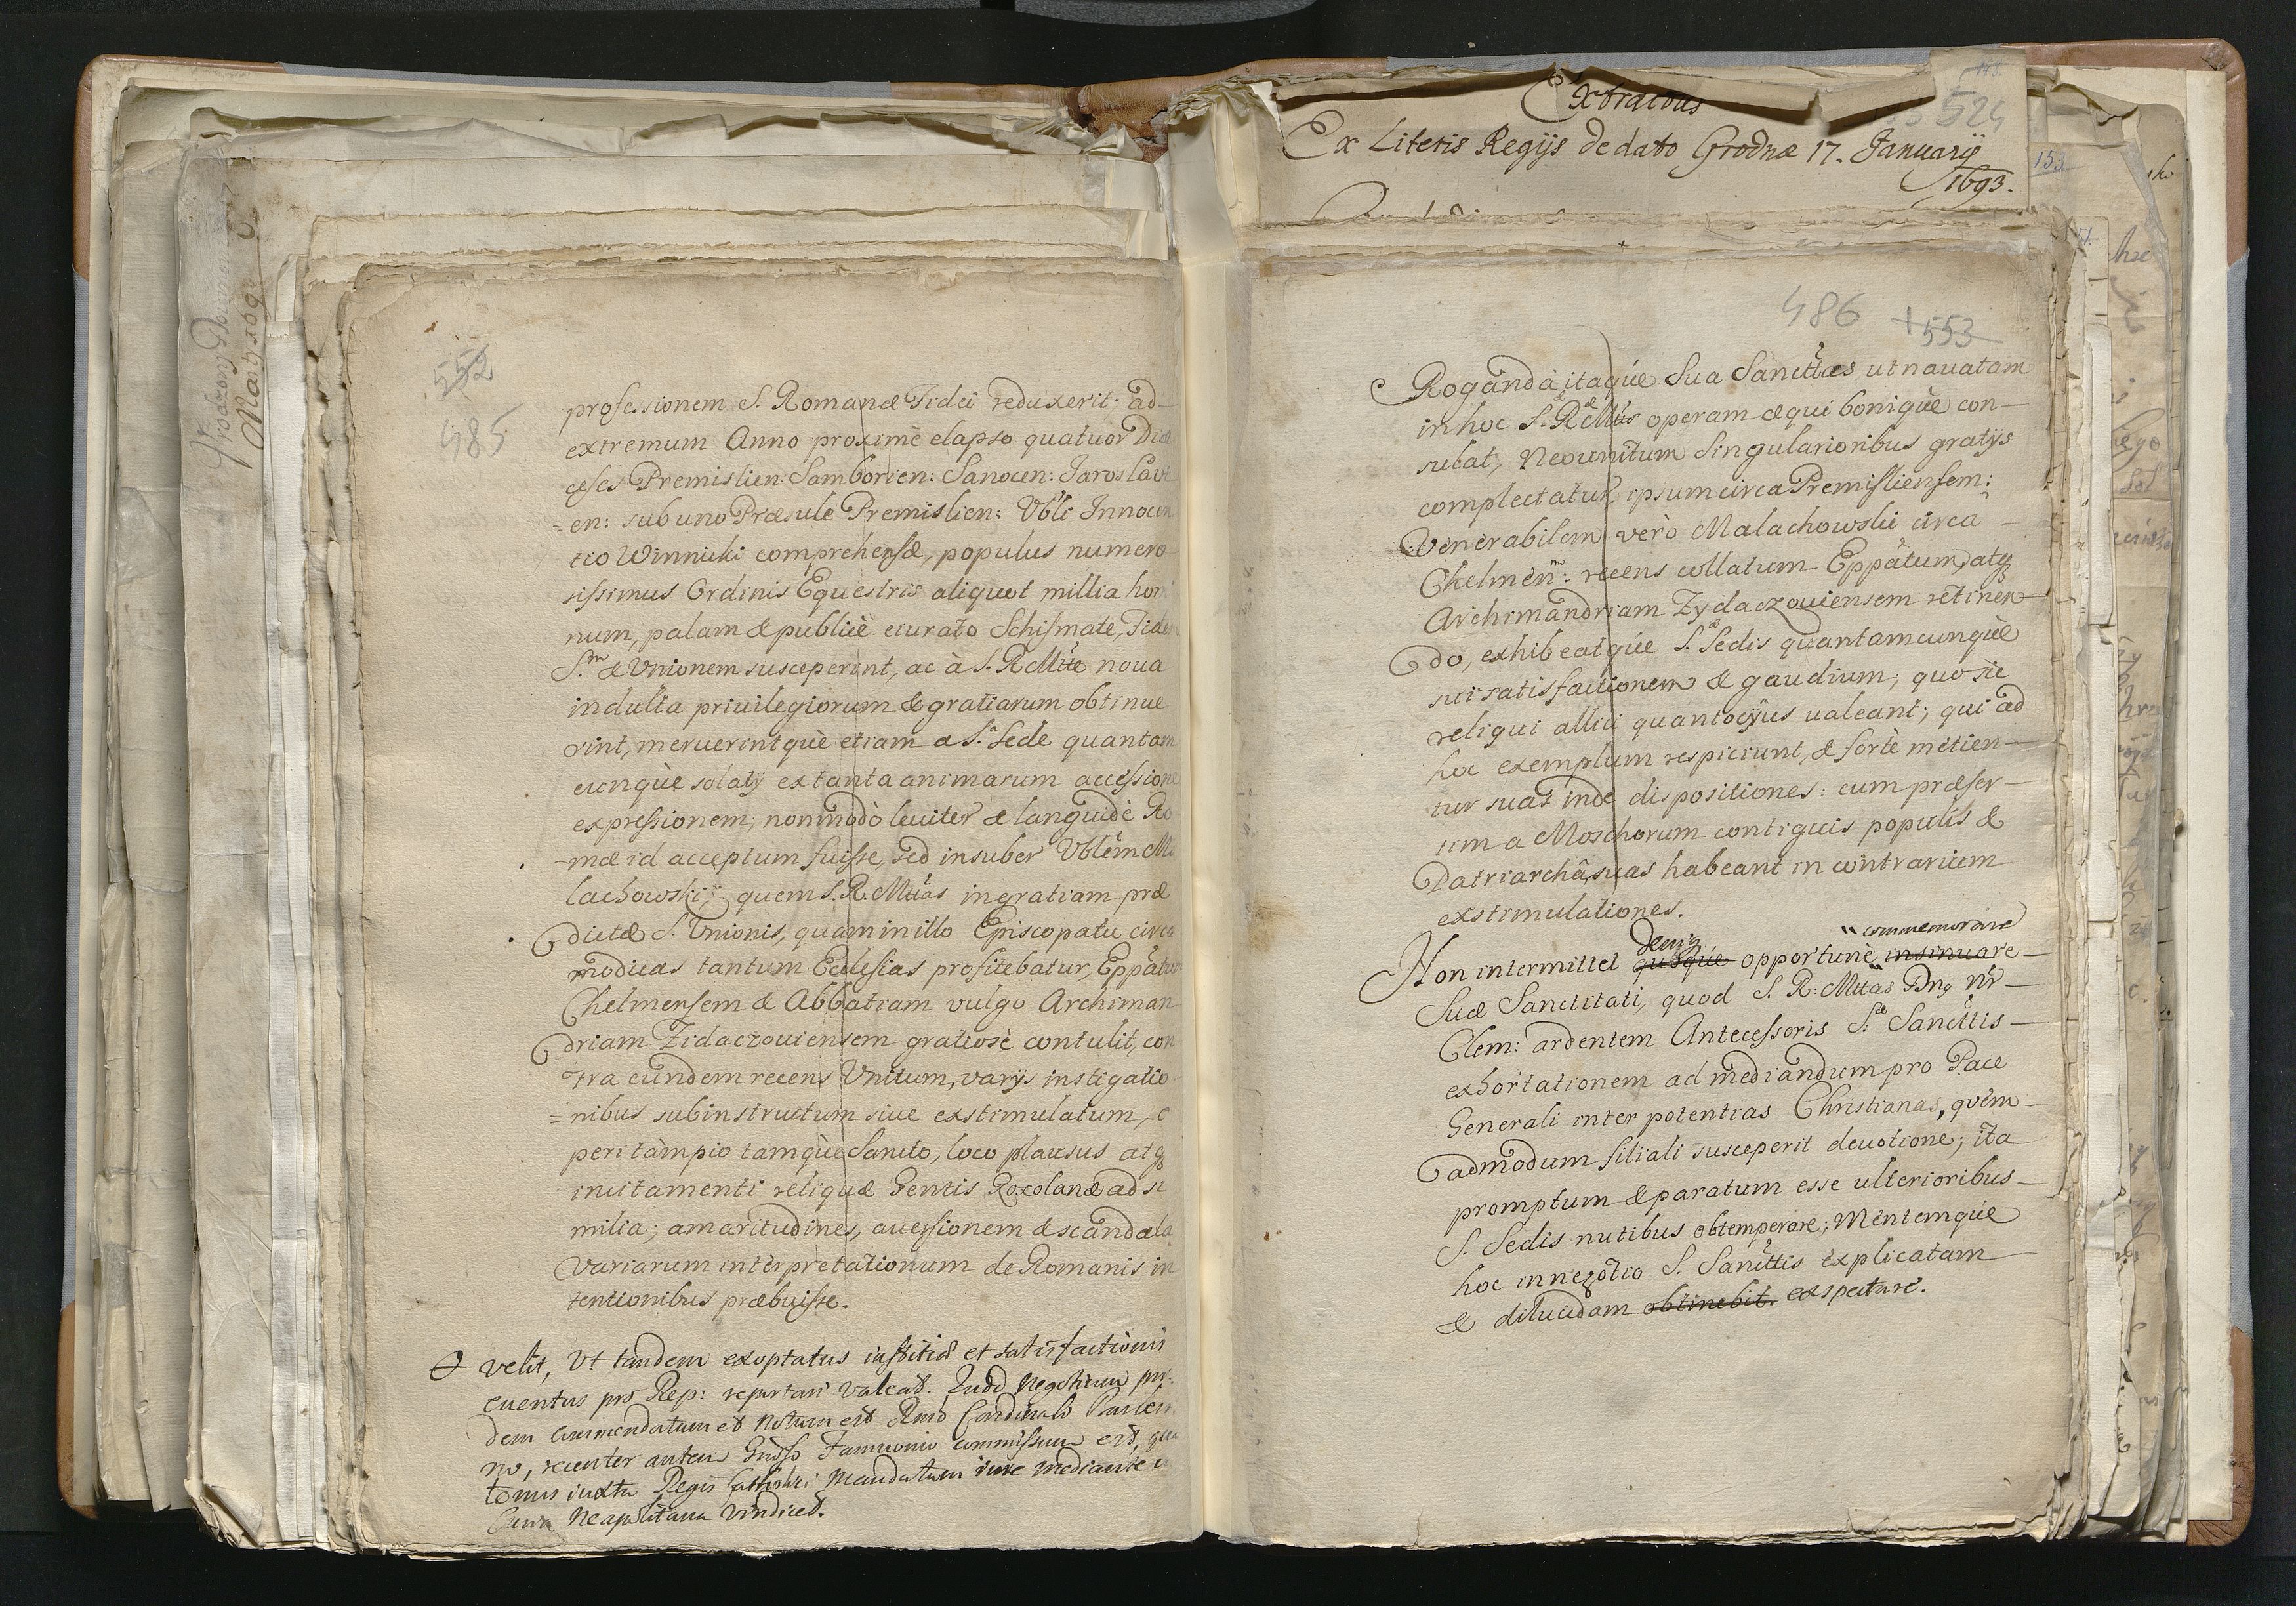 552
485
professionem S. Romanæ Fidei reduxerit; ad-
extremum Anno proximè elapso quatuor Diæ
ceses Premislien: Samborien: Sanocen: Jaroslavi
=en: sub uno Præsule Premislien: Vbli Innocen
tio Winnicki comprehensæ, populus numero
sissimus Ordinis Equestris aliquot millia homi
num, palam & publicè eiurato Schismate, Fidem
S.m & Vnionem susceperint, ac à S. R. Mtte noua
indulta priuilegiorum & gratiarum obtinue
rint, meruerintquè etiam a S.a Sede quantam
cunquè solatij ex tanta animarum accessione
expressionem; non modò leuiter & languidè Ro
-mæ id acceptum fuisse, sed insuper Vblem Ma
lachowskij, quem S. R. Mttas in gratiam præ
dictæ S. Vnionis, quam in illo Episcopatu circa
modicas tantum Ecclesias profitebatur, Eppatum
Chelmensem & Abbatiam vulgo Archiman
driam Zidaczouiensem gratiosè contulit, con
tra eundem recens Vnitum, varijs instigatio
=nibus subinstructum siue exstimulatum, o
peri tàm pio tamquè Sancto, loco plausus atq
inuitamenti reliquæ Gentis Roxolanæ ad si
milia; amaritudines, auersionem & scandala
variarum interpretationum de Romanis in
tentionibus præbuisse.
velit, Vt tandem exoptatus iustitiæ et satisfactionis
euentus pro Rep: reportari valeat. Quod Negotium pri-
dem commendatum et notum est Emo Cardinali Barberi
no, recenter autem commissum est, qua
tenus iuxta Regis Catholici Mandatum iure mediante
Curia Neapolitana vindicet.
Extractus
Ex Literis Regijs de dato Grodnæ 17. Januarij
1693.
524
153
486 +553
Roganda itaquè Sua Sancttas ut nauatam
in hoc S. Ræ Mttis operam æqui boniquè con-
sulat, Neounitum singularioribus gratijs
complectatur, ipsum circa Premisliensem;
Venerabilem verò Malachowski circa
Chelmen: recens collatum Eppatum, atq
Archimandriam Zydaczouiensem retinen
do, exhibeatquè S.æ Sedis quantamcunquè
sui satisfactionem & gaudium, quo sic
reliqui allici quantocijus ualeant; qui ad
hoc exemplum respiciunt, & fortè metien-
tur suas inde dispositiones: cum præser-
tim a Moschorum contiguis populis &
Patriarchâ, suas habeant in contrarium
exstimulationes.
commemorare
Deniq
Non intermittet quoque opportunè insinuare
Suæ Sanctitati, quod S. R. Mttas Dnq Nr
Clem: ardentem Antecessoris S.æ Sancttis
exhortationem ad mediandum pro Pace
Generali inter potentias Christianas, quèm-
admodum filiali susceperit deuotione, ita
promptum & paratum esse ulterioribus
S. Sedis nutibus obtemperare; Mentemquè
hoc in negotio S. Sancttis explicatam
& dilucidam obtinebit. exspectare.